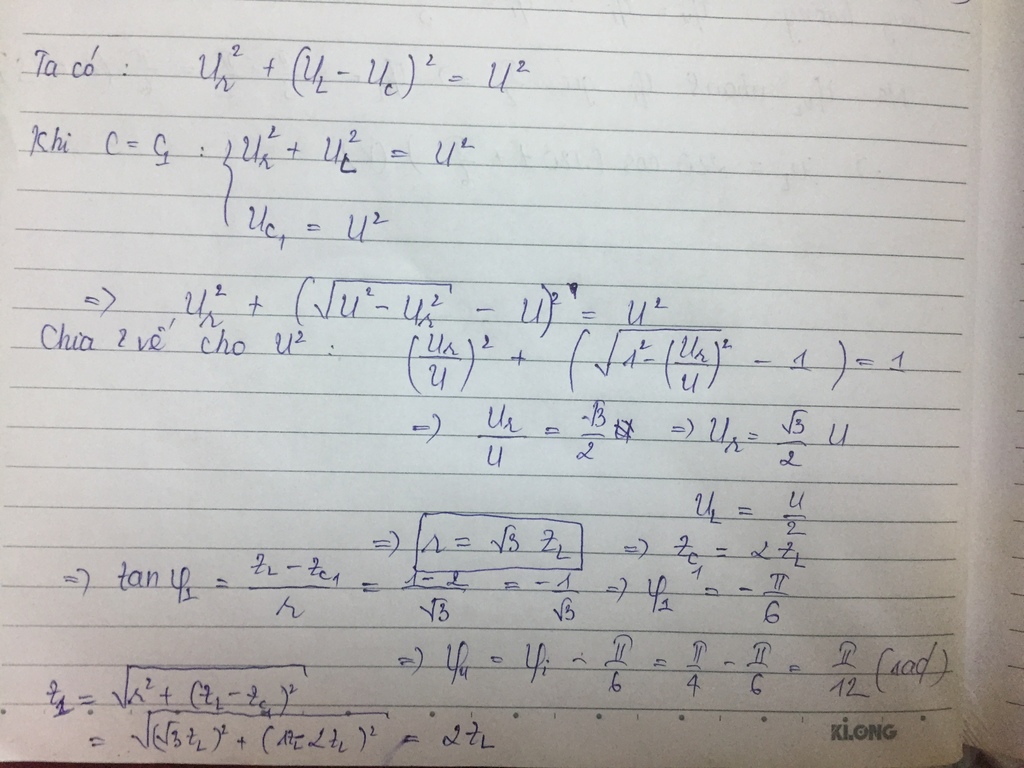 Ta có : U_r² + (U_L - U_C)² = U²
Khi C = C₁ : { U_r² + U_L² = U²
U_C₁ = U²
=> U_r² + (√(U² - U_r²) - U)² = U²
Chia 2 vế cho U² : (U_r/U)² + (√(1² - (U_r/U)²) - 1) = 1
=> U_r/U = √3/2 => U_r = √3/2 U
U_L = U/2
=> r = √3 Z_L => Z_C₁ = 2Z_L
=> tan φ₁ = (Z_L - Z_C₁)/r = (1-2)/√3 = -1/√3 => φ₁ = -π/6
=> φ_u = φ_i - π/6 = π/4 - π/6 = π/12 (rad)
Z₁ = √(r² + (Z_L - Z_C₁)²)
= √((√3Z_L)² + (1Z_L-2Z_L)²) = 2Z_L
KLONG